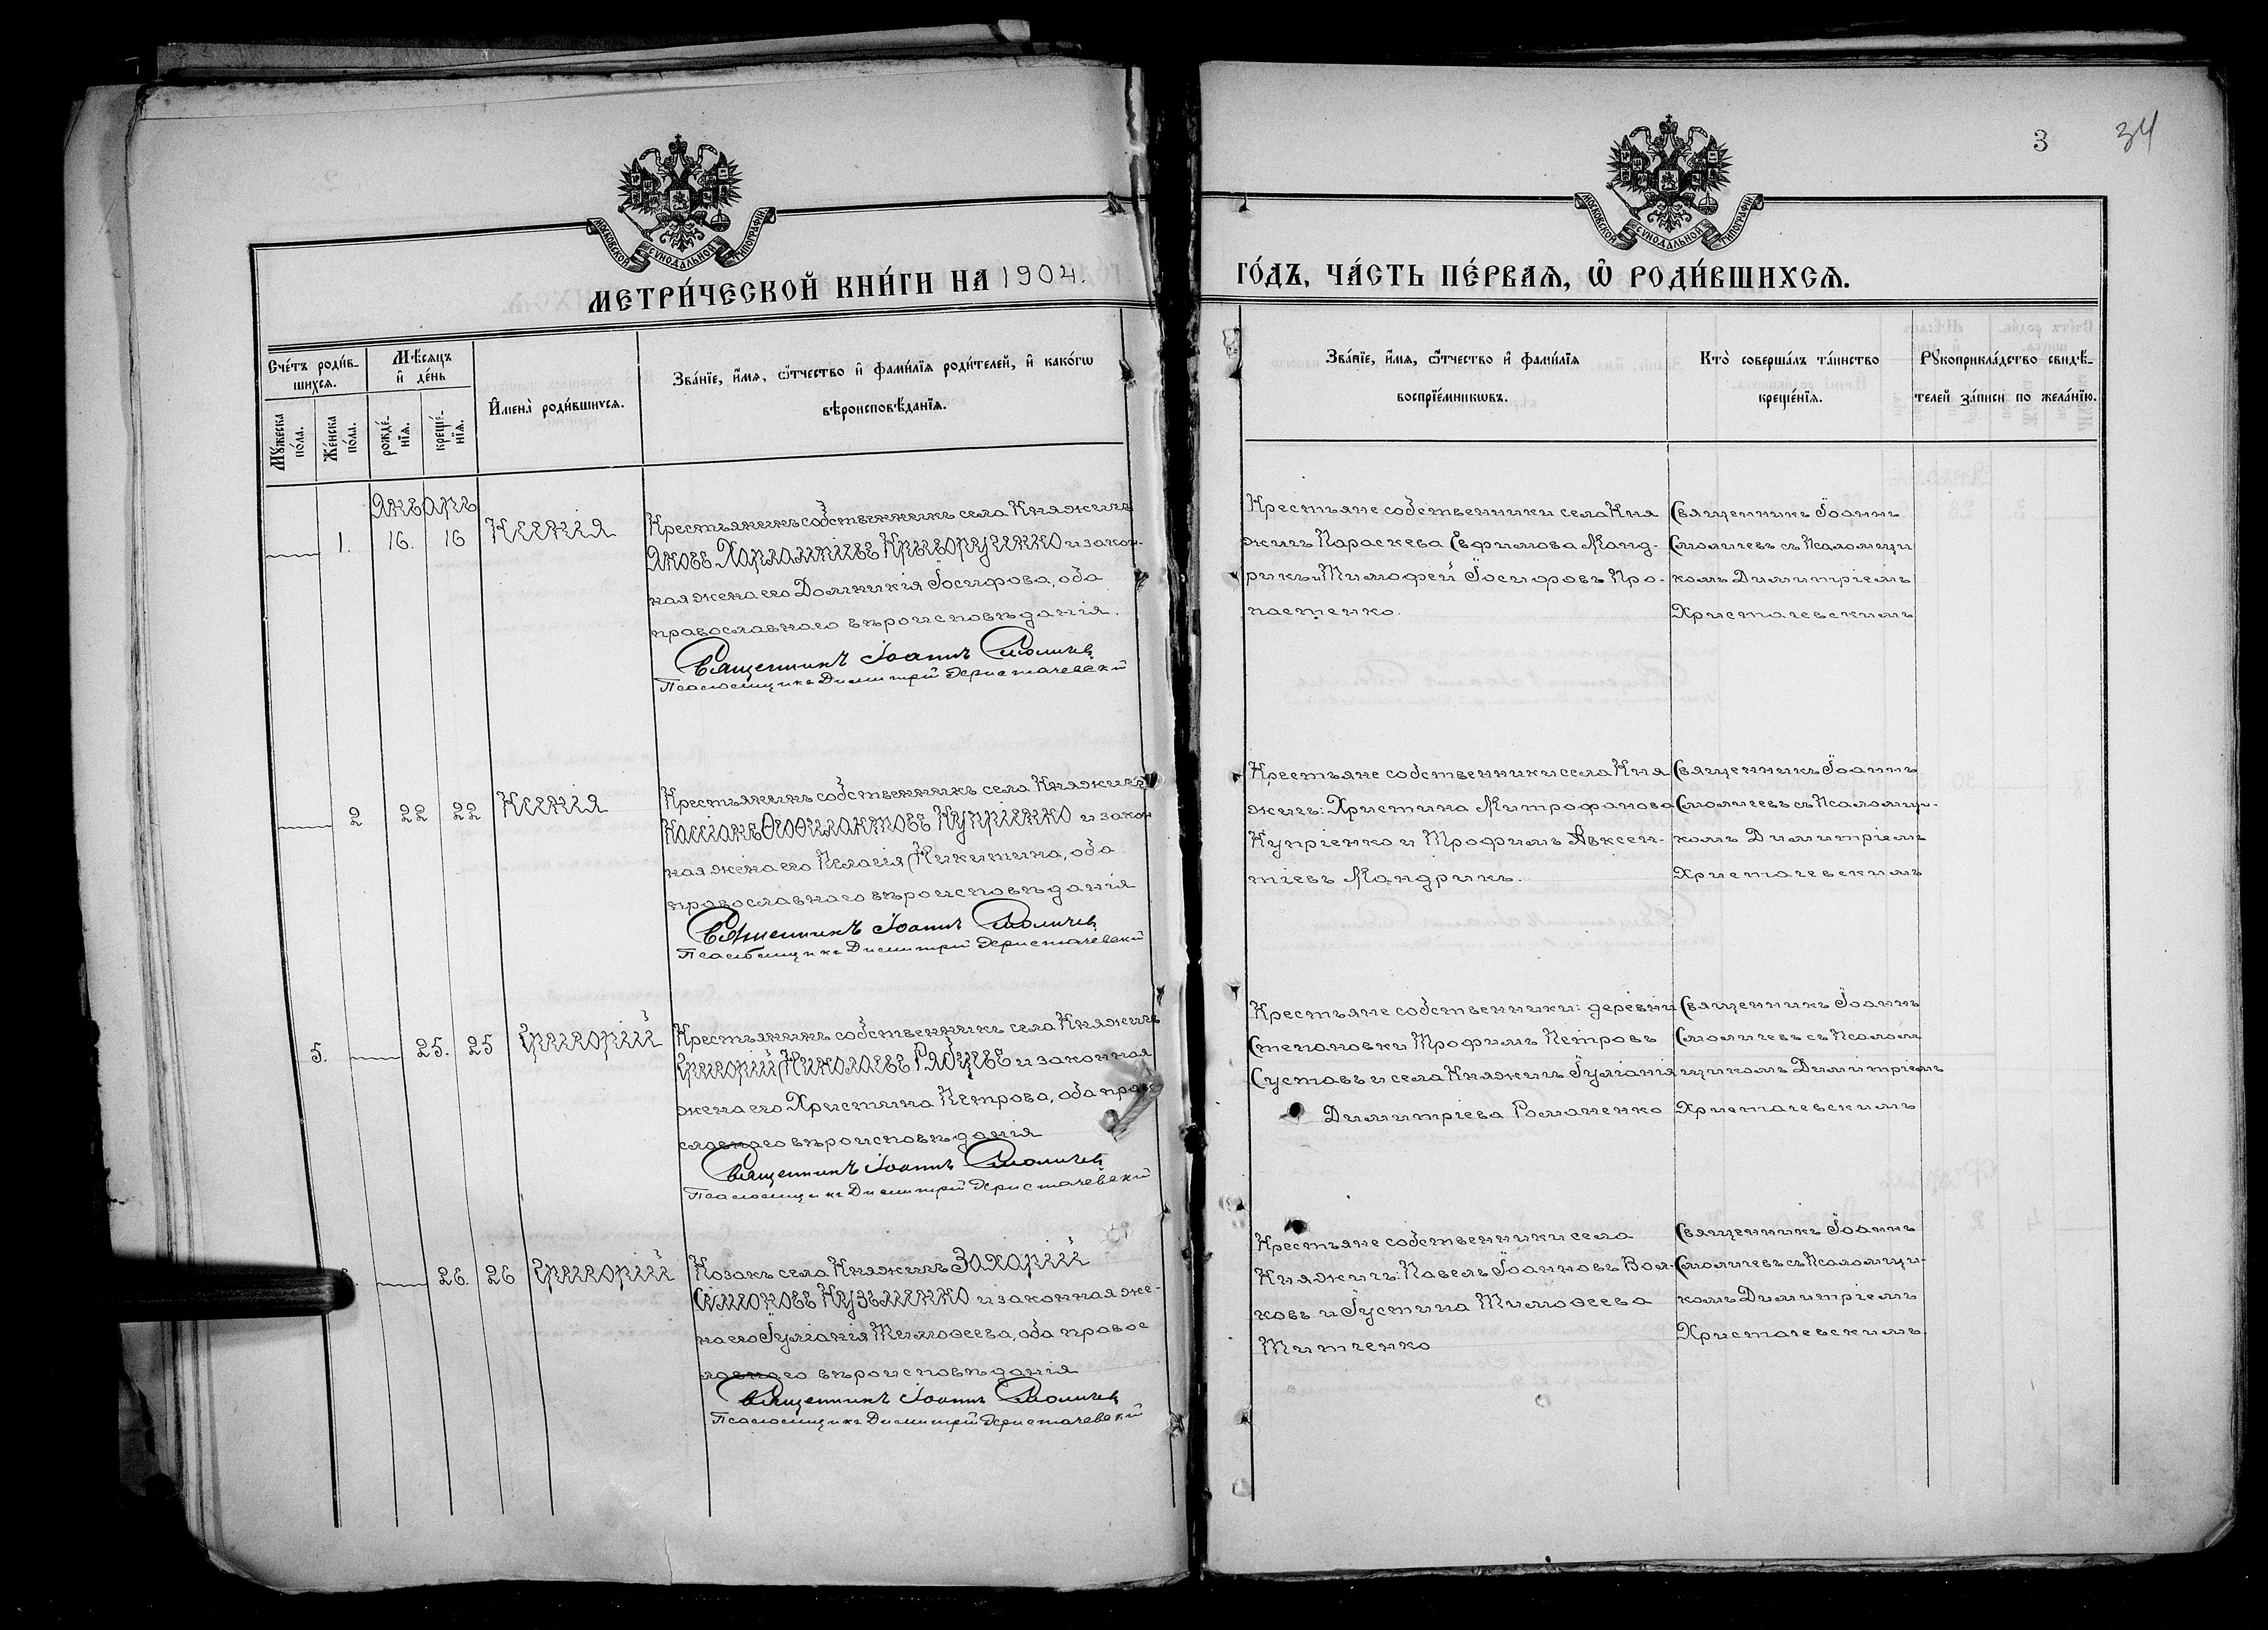 3 34
МОСКОВСКОЙ СУНОДАЛЬНОЙ ТИПОГРАФІИ
МОСКОВСКОЙ СУНОДАЛЬНОЙ ТИПОГРАФІИ
МЕТРИ́ЧЕСКОЙ КНИ́ГИ НА 1904.
ГО́ДЪ, ЧА́СТЬ ПЕ́РВАѦ, Ѡ҆ РОДИ́ВШИХСѦ.
Сче́тъ роди́в-
шихсѧ.
Мꙋ́жеска
по́ла.
Же́нска
по́ла.
Мѣ́сѧцъ
и҆ де́нь
рожде́-
нїѧ.
креще́-
нїѧ.
И҆мена̀ роди́вшихсѧ.
Зва́нїе, и҆́мѧ, ѻ҆́тчество и҆ фами́лїѧ роди́телей, и҆ како́гѡ
вѣроисповѣ́данїѧ.
Зва́нїе, и҆́мѧ, ѻ҆́тчество и҆ фами́лїѧ
воспрїе́мникѡвъ.
Кто̀ соверша́лъ та́инство
креще́нїѧ.
Рꙋкоприкла́дство свидѣ́-
телей за́писи по жела́нїю.
Январь
1. 16. 16 Ксенія
Крестьянинъ собственникъ села Княжичъ
Яковъ Харлампіевъ Криворученко и закон-
ная жена его Домникія Іосифова, оба
православнаго вѣроисповѣданія.
Священникъ Іоаннъ Смоличевъ
Псаломщикъ Димитрій Христачевскій
Крестьяне собственники села Кня
жичъ Параскева Ефимова Манд-
рикъ и Тимофей Іосифовъ Про-
пастенко.
Священникъ Іоаннъ
Смоличевъ съ Псаломщи
комъ Димитріемъ
Христачевскимъ
2 22 22 Ксенія
Крестьянинъ собственникъ села Княжичъ
Кассіанъ Ѳеофилактовъ Купріенко и закон
ная жена его Пелагія Никитина, оба
православнаго вѣроисповѣданія
Священникъ Іоаннъ Смоличевъ
Псаломщикъ Димитрій Христачевскій
Крестьяне собственники села Кня
жичъ: Христина Митрофанова
Купріенко и Трофимъ Авксен-
тіевъ Мандрикъ.
Священникъ Іоаннъ
Смоличевъ съ Псаломщи-
комъ Димитріемъ
Христачевскимъ
5. 25. 25 Григорій
Крестьянинъ собственникъ села Княжичъ
Григорій Николаевъ Рябцевъ и законная
жена его Христина Петрова, оба право
славнаго вѣроисповѣданія
Священникъ Іоаннъ Смоличевъ
Псаломщикъ Димитрій Христачевскій
Крестьяне собственники: деревни
Степановки Трофимъ Петровъ
Суставъ и села Княжичъ Іуліанія
Димитріева Романенко
Священникъ Іоаннъ
Смоличевъ съ Псалом
щикомъ Димитріемъ
Христачевскимъ
26. 26 Григорій
Козакъ села Княжичъ Захарій
Симоновъ Кузьменко и законная же-
на его Іуліанія Тимоѳеева, оба правос
лавнаго вѣроисповѣданія
Священникъ Іоаннъ Смоличевъ
Псаломщикъ Димитрій Христачевскій
Крестьяне собственники села
Княжичъ: Павелъ Іоанновъ Вол-
ковъ и Іустина Тимоѳеева
Титченко
Священникъ Іоаннъ
Смоличевъ съ Псаломщи-
комъ Димитріемъ
Христачевскимъ.